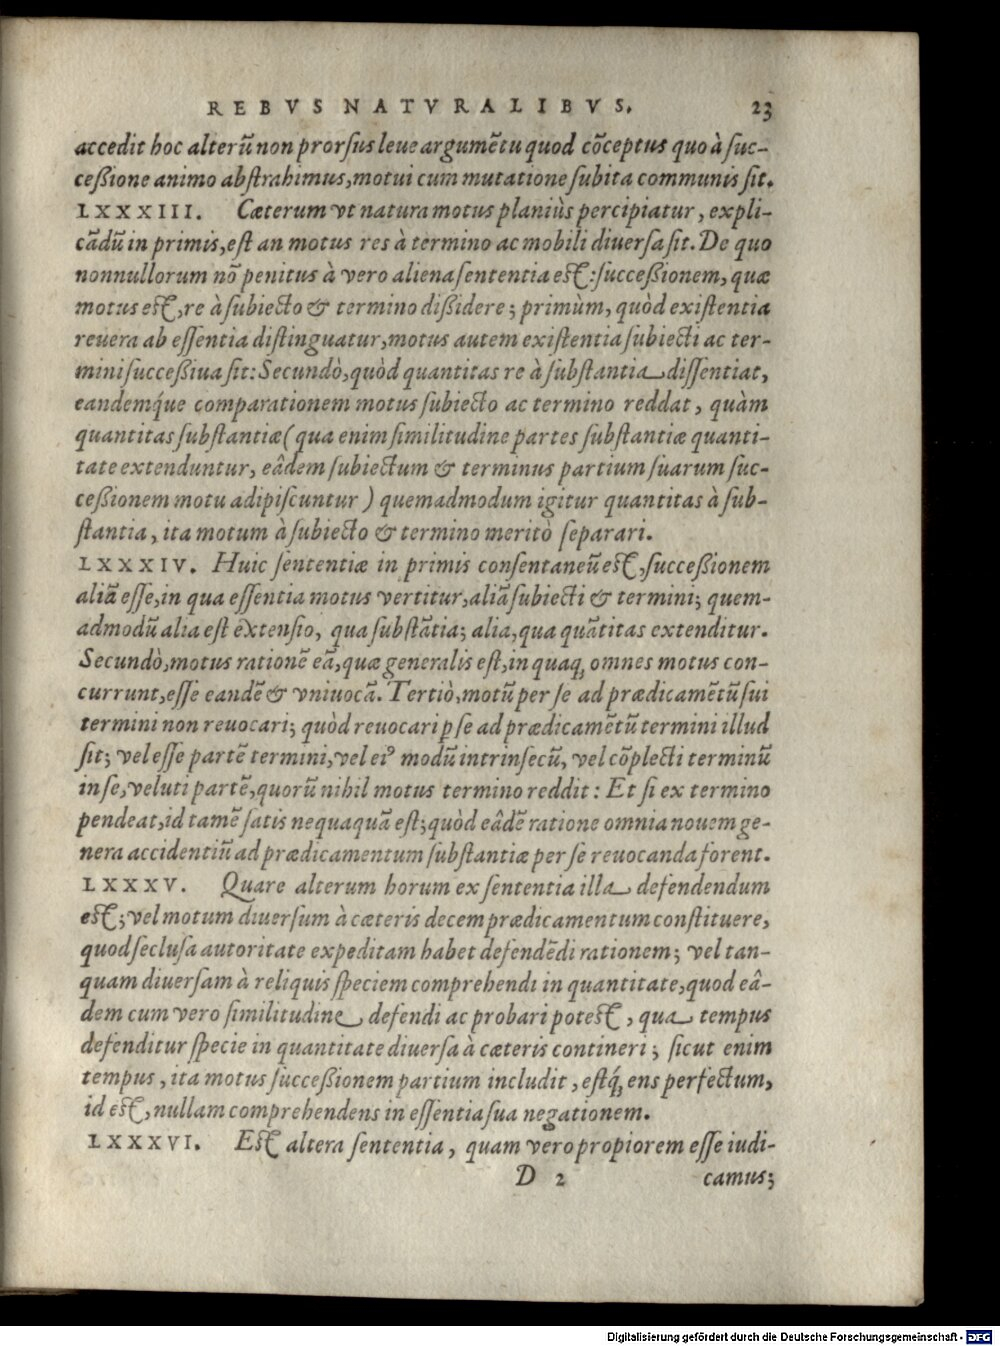 REBVS NATVRALIBVS. 23
accedit hoc alterũ non prorſus leue argumẽtu quod cõceptus quo à ſuc-
ceßione animo abſtrahimus, motui cum mutatione ſubita communis ſit.
LXXXIII. Cæterum vt natura motus planiùs percipiatur, expli-
cãdũ in primis, eſt an motus res à termino ac mobili diuerſa ſit. De quo
nonnullorum nõ penitus à vero aliena ſententia eſt: ſucceßionem, quæ
motus eſt, re à ſubiecto & termino dißidere; primùm, quòd exiſtentia
reuera ab eſſentia diſtinguatur, motus autem exiſtentia ſubiecti ac ter-
mini ſucceßiua ſit: Secundò, quòd quantitas re à ſubſtantia diſſentiat,
eandemq́ue comparationem motus ſubiecto ac termino reddat, quàm
quantitas ſubſtantiæ (qua enim ſimilitudine partes ſubſtantiæ quanti-
tate extenduntur, eâdem ſubiectum & terminus partium ſuarum ſuc-
ceßionem motu adipiſcuntur) quemadmodum igitur quantitas à ſub-
ſtantia, ita motum à ſubiecto & termino meritò ſeparari.
LXXXIV. Huic ſententiæ in primis conſentaneũ eſt, ſucceßionem
aliã eſſe, in qua eſſentia motus vertitur, aliã ſubiecti & termini; quem-
admodũ alia eſt extenſio, qua ſubſtãtia; alia, qua quãtitas extenditur.
Secundò, motus rationẽ eã, quæ generalis eſt, in quaq̃ omnes motus con-
currunt, eſſe eandẽ & vniuocã. Tertiò, motũ per ſe ad prædicamẽtũ ſui
termini non reuocari; quòd reuocari ꝑ ſe ad prædicamẽtũ termini illud
ſit; vel eſſe partẽ termini, vel eiꝰ modũ intrinſecũ, vel cõplecti terminũ
in ſe, veluti partẽ, quorũ nihil motus termino reddit: Et ſi ex termino
pendeat, id tamẽ ſatis nequaquã eſt; quòd eâdẽ ratione omnia nouem ge-
nera accidentiũ ad prædicamentum ſubſtantiæ per ſe reuocanda forent.
LXXXV. Quare alterum horum ex ſententia illa defendendum
eſt; vel motum diuerſum à cæteris decem prædicamentum conſtituere,
quod ſecluſa autoritate expeditam habet defendẽdi rationem; vel tan-
quam diuerſam à reliquis ſpeciem comprehendi in quantitate, quod eâ-
dem cum vero ſimilitudine defendi ac probari poteſt, qua tempus
defenditur ſpecie in quantitate diuerſa à cæteris contineri; ſicut enim
tempus, ita motus ſucceßionem partium includit, eſtq́; ens perfectum,
id eſt, nullam comprehendens in eſſentia ſua negationem.
LXXXVI. Eſt altera ſententia, quam vero propiorem eſſe iudi-
D 2 camus;
Digitalisierung gefördert durch die Deutsche Forschungsgemeinschaft - DFG